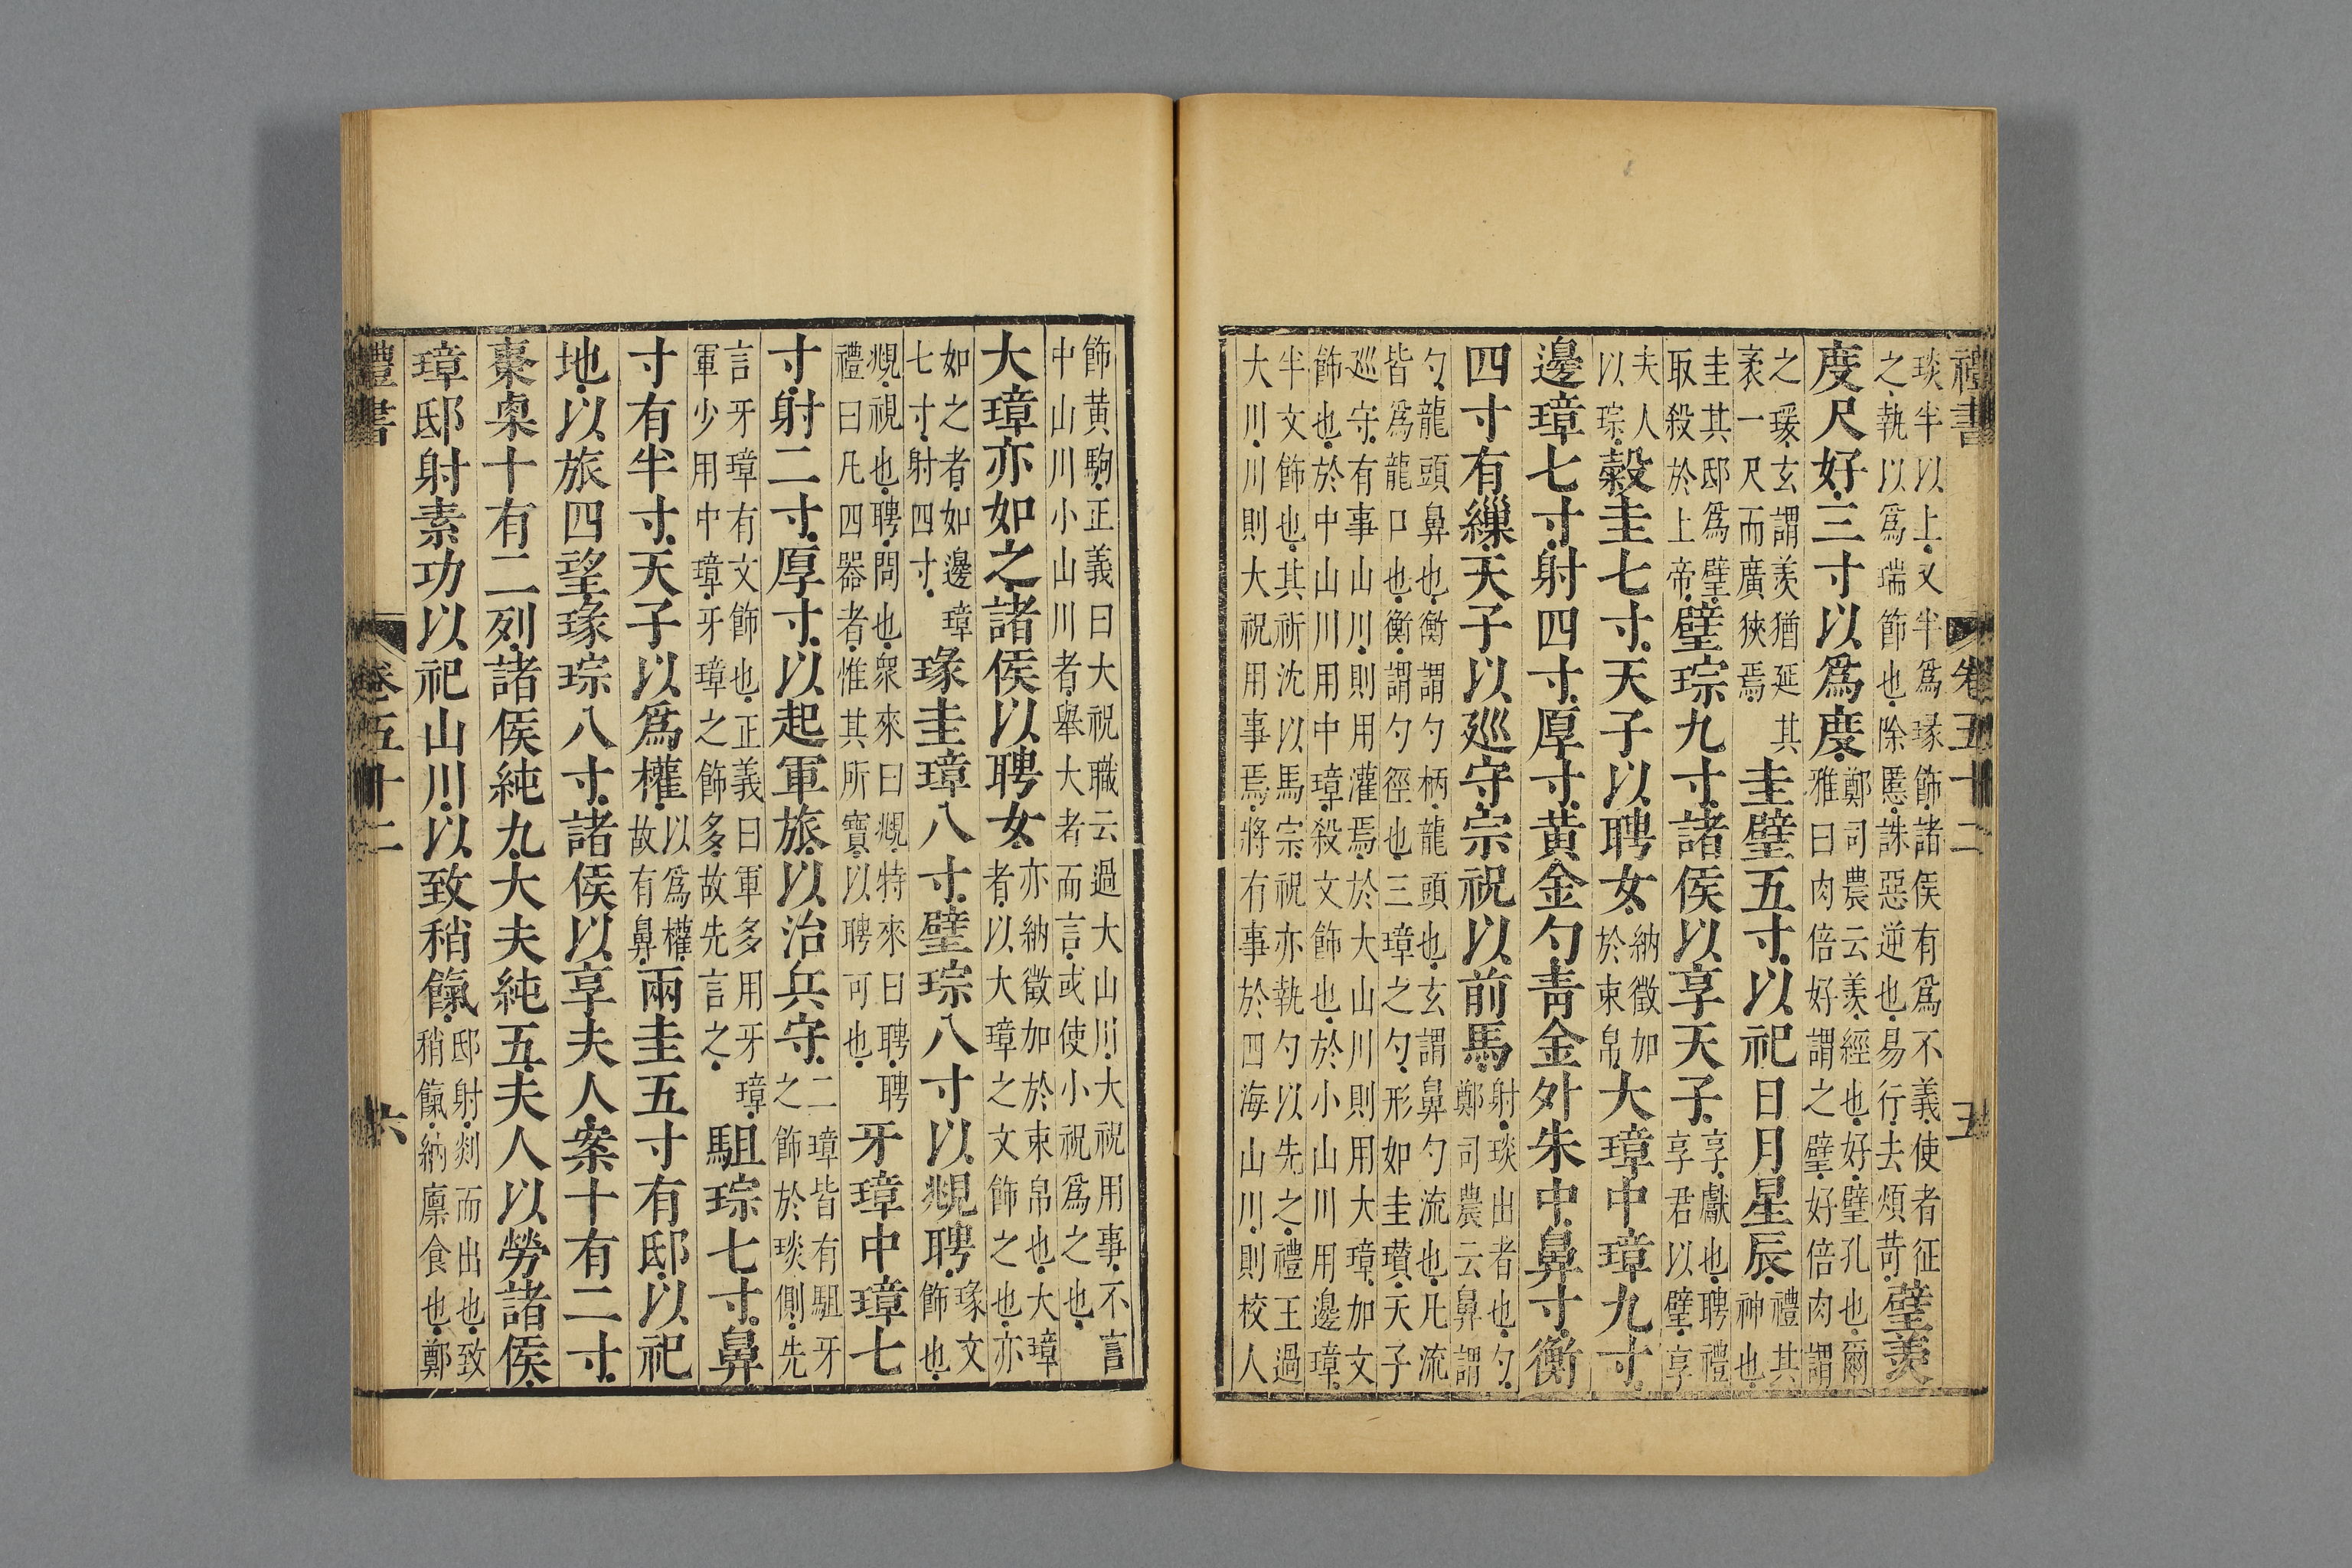 禮書 卷五十二 五
琰半以上又半爲瑑飾諸侯有爲不義使者征
之執以爲瑞節也除慝誅惡逆也易行去煩苛璧羨
度尺好三寸以爲度鄭司農云羨經也好璧孔也爾
雅曰肉倍好謂之璧好倍肉謂
之瑗玄謂羨猶延其
袤一尺而廣狹焉圭璧五寸以祀日月星辰禮其
神也
圭其邸爲璧
取殺於上帝璧琮九寸諸侯以享天子享獻也聘禮
享君以璧享
夫人
以琮穀圭七寸天子以聘女納徵加
於束帛大璋中璋九寸
邊璋七寸射四寸厚寸黃金勺青金外朱中鼻寸衡
四寸有繅天子以巡守宗祝以前馬射琰出者也勺
鄭司農云鼻謂
勺龍頭鼻也衡謂勺柄龍頭也玄謂鼻勺流也凡流
皆爲龍口也衡謂勺徑也三璋之勺形如圭瓚天子
巡守有事山川則用灌焉於大山川則用大璋加文
飾也於中山川用中璋殺文飾也於小山川用邊璋
半文飾也其祈沈以馬宗祝亦執勺以先之禮王過
大川川則大祝用事焉將有事於四海山川則校人
飾黃駒正義曰大祝職云過大山川大祝用事不言
中山川小山川者舉大者而言或使小祝爲之也
大璋亦如之諸侯以聘女亦納徵加於束帛也大璋
者以大璋之文飾之也亦
如之者如邊璋
七寸射四寸瑑圭璋八寸璧琮八寸以覜聘瑑文
飾也
覜視也聘問也衆來曰覜特來曰聘聘
禮曰凡四器者惟其所寶以聘可也牙璋中璋七
寸射二寸厚寸以起軍旅以治兵守二璋皆有駔牙
之飾於琰側先
言牙璋有文飾也正義曰軍多用牙璋
軍少用中璋牙璋之飾多故先言之駔琮七寸鼻
寸有半寸天子以爲權以爲權
故有鼻兩圭五寸有邸以祀
地以旅四望瑑琮八寸諸侯以享夫人案十有二寸
棗㮚十有二列諸侯純九大夫純五夫人以勞諸侯
璋邸射素功以祀山川以致稍餼邸射剡而出也致
稍餼納廩食也鄭
禮書 卷五十二 六